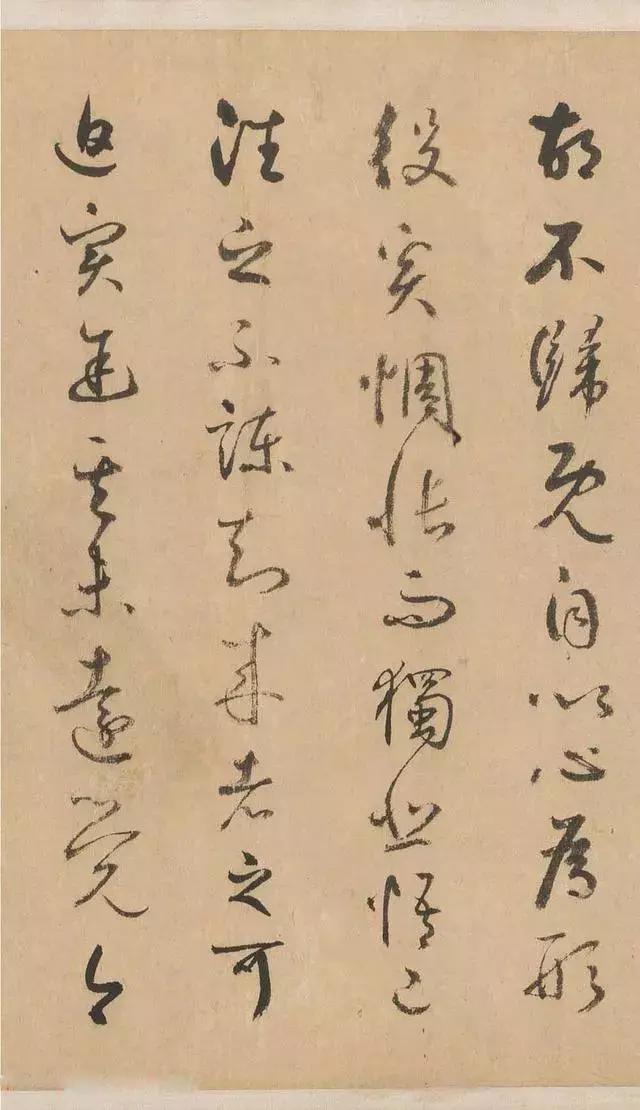 胡不歸既自以心為形
役奚惆悵而獨悲悟已
往之不諫知来者之可
追實迷其未遠覺今